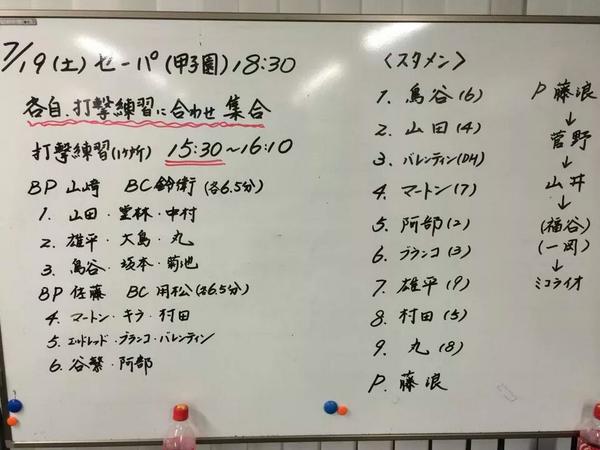 7/19(土) セ-パ(甲子園)18:30
各自、打撃練習に合わせ 集合
打撃練習(1ヶ所) 15:30~16:10
BP 山﨑 BC 鈴衛(各6.5分)
1. 山田・雲林・中村
2. 雄平・大島・丸
3. 鳥谷・坂本・菊池
BP 佐藤 BC 用松(各6.5分)
4. マートン・キラ・村田
5. エルドレッド・ブランコ・バレンティン
6. 谷繁・阿部
<スタメン>
1. 鳥谷(6)
2. 山田(4)
3. バレンティン(DH)
4. マートン(7)
5. 阿部(2)
6. ブランコ(3)
7. 雄平(9)
8. 村田(5)
9. 丸(8)
P. 藤浪
P 藤浪
↓
菅野
↓
山井
↓
(福谷)
(一岡)
↓
ミコライオ